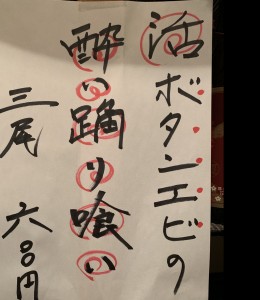 活ボタンエビの
酔い踊り喰い
三尾 六〇〇円